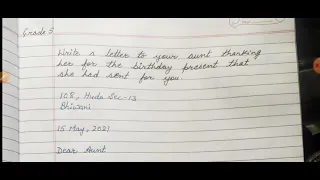 Grade 5
Write a letter to your aunt thanking
her for the birthday present that
she had sent for you.
108, Huda Sec-13
Bhiwani
15 May, 2021
Dear Aunt